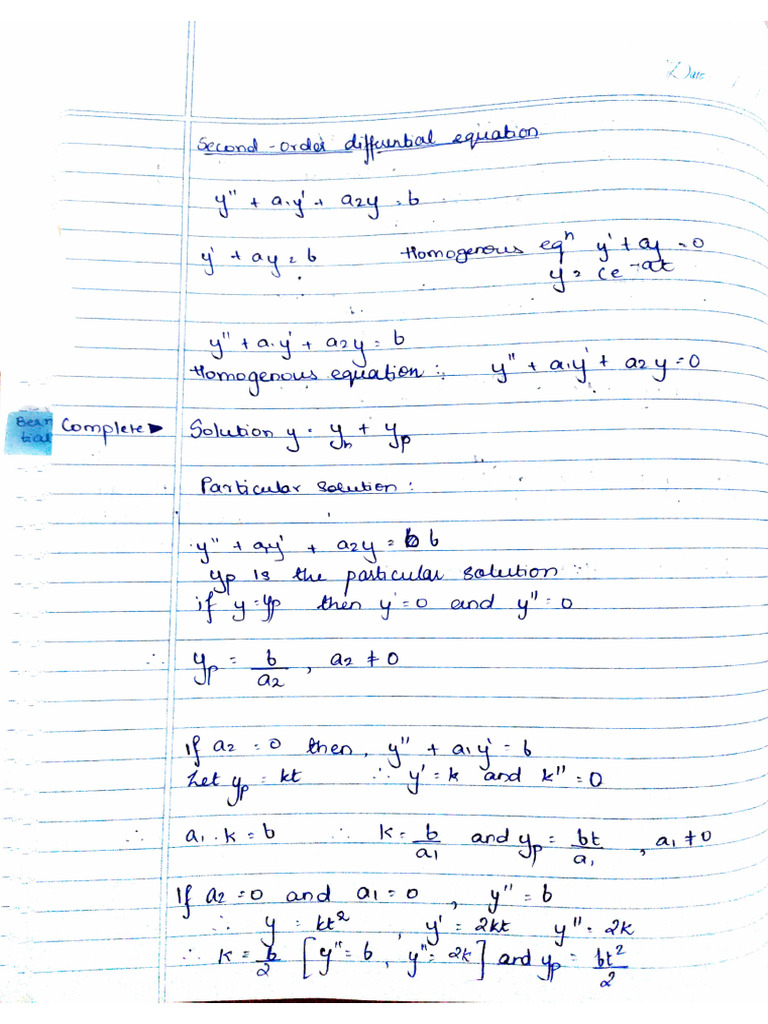 Date
Second-order differential equation
y'' + a₁y' + a₂y = b
y' + ay = b Homogenous eqⁿ y' + ay = 0
y = ce⁻ᵃᵗ
y'' + a₁y' + a₂y = b
Homogenous equation :. y'' + a₁y' + a₂y = 0
Complete ► Solution y = yₕ + yₚ
Particular solution :
y'' + a₁y' + a₂y = b
yₚ is the particular solution
if y = yₚ then y' = 0 and y'' = 0
∴ yₚ = b/a₂ , a₂ ≠ 0
If a₂ = 0 then, y'' + a₁y' = b
Let yₚ = kt ∴ y' = k and k'' = 0
∴ a₁ . k = b ∴ k = b/a₁ and yₚ = bt/a₁ , a₁ ≠ 0
If a₂ = 0 and a₁ = 0 , y'' = b
∴ y = kt² , y' = 2kt y'' = 2k
∴ k = b/2 [y'' = b , y'' = 2k] and yₚ = bt²/2